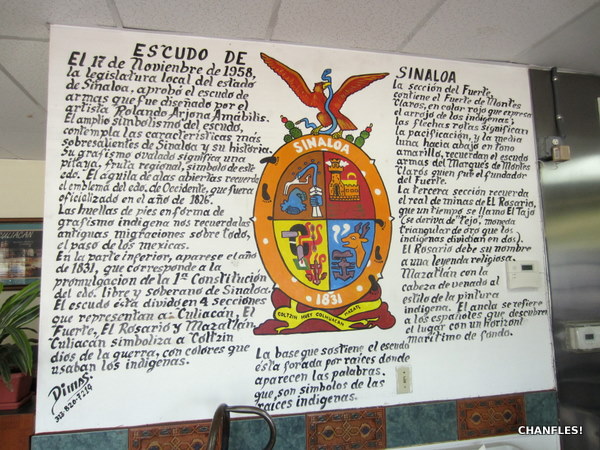 ESCUDO DE
El 17 de Noviembre de 1958,
la legislatura local del estado
de Sinaloa, aprobó el escudo de
armas que fue diseñado por el
artista Rolando Arjona Amábilis.
El amplio simbolismo del escudo,
contempla las características más
sobresalientes de Sinaloa y su historia.
Su grafismo ovalado significa una
pitaya, fruta regional, simbolo de este
edo. El águila de alas abiertas recuerda
el emblema del edo. de Occidente, que fuera
oficializado en el año de 1826.
Las huellas de pies en forma de
grafismo indigena nos recuerda las
antiguas migraciones sobre todo,
el paso de los mexicas.
En la parte inferior, aparese el año
de 1831, que corresponde a la
promulgacion de la 1ra Constitución
del edo. libre y soberano de Sinaloa.
El escudo está dividio en 4 secciones
que representan a: Culiacán, El
Fuerte, El Rosario y Mazatlán.
Culiacán simboliza a Coltzin
dios de la guerra, con colores que
usaban los indígenas.
Dimas
SINALOA
1831
COLTZIN HUEY COLHUACAN MAZATL
La base que sostiene el escudo
está forada por raíces donde
aparecen las palabras.
que, son símbolos de las
raíces indígenas.
SINALOA
La sección del Fuerte,
contiene el Fuerte de Montes
Claros, en color rojo que expresa
el arrojo de los indígenas;
las flechas rotas significan
la pacificación, y la media
luna hacia abajo en tono
amarillo, recuerdan el escudo
armas del Marques de Montes
Claros quien fue el fundador
del Fuerte.
La tercera sección recuerda
el real de minas de El Rosario,
que un tiempo se llamo El Tajo
(se deriva de "Tejo", moneda
triangular de oro que los
indígenas dividian en dos).
El Rosario debe su nombre
a una leyenda religiosa.
Mazatlán con la
cabeza de venado al
estilo de la pintura
indígena. El ancla se refiere
a los españoles que descubre
el lugar con un horizont
marítimo de fondo.
CHANFLES!